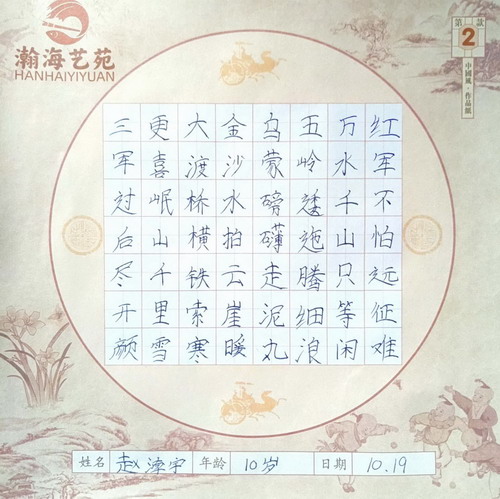 瀚海艺苑
HANHAIYIYUAN
第2款
中國風·作品紙
红军不怕远征难
万水千山只等闲
五岭逶迤腾细浪
乌蒙磅礴走泥丸
金沙水拍云崖暖
大渡桥横铁索寒
更喜岷山千里雪
三军过后尽开颜
姓名 赵宇 年龄 10岁 日期 10.19